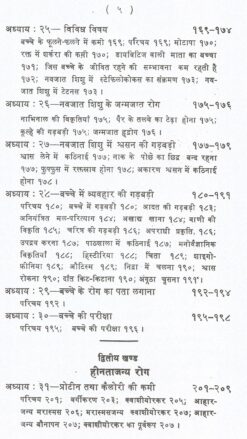 ( ५ )
अध्याय : २५— विविध विषय १६९-१७४
बच्चे के फूलने-फलने में कमी १६९; परिचय १६९; मोटापा १७०;
रक्त में शर्करा की कमी १७०; डायबिटिज वाली माता का बच्चा
१७१; जिस बच्चे के जीवित रहने की सम्भावना कम रहती है
१७२; नवजात शिशु में स्टेफिलोकोकस का संक्रमण १७३; नव-
जात शिशु में टेटनस १७३ ।
अध्याय : २६—नवजात शिशु के जन्मजात रोग १७५-१७६
नाभिनाल की विकृतियाँ १७५; पैर के तलवे का टेढ़ा होना १७५;
कूल्हे की गड़बड़ी १७५; जन्मजात हृद्रोग १७६ ।
अध्याय : २७—नवजात शिशु में श्वसन की गड़बड़ी १७७-१७९
श्वास लेने में कठिनाई १७७; नाक के पीछे का छिद्र बन्द रहना
१७७; फुफ्फुस में रक्तस्राव होना १७८; अकारण श्वसन में कठिनाई
होना १७८ ।
अध्याय : २८—बच्चे में व्यवहार की गड़बड़ी १८०-१९१
परिचय १८०; बच्चे में गड़बड़ी १८०; आदत की गड़बड़ी १८३;
अनियंत्रित मल-परित्याग १८४; अखाद्य खाना १८४; वाणी की
विकृति १८५; चरित्र की गड़बड़ी १८६; अपराधी प्रकृति. १८६;
उपद्रव करना १८७; पाठशाला में कठिनाई १८७; मनोवैज्ञानिक
विकृतियाँ १८८; हिस्टीरिया १८८; चिंता १८९; शाइगो-
फ्रीनिया १८९; औटिस्म १८९; निद्रा में चलना १९०; श्वास
रोकना १९०; दाँत किट-किटाना १९०; अंगूठा चूसना १९१ ।
अध्याय : २९—बच्चे के रोग का पता लगाना १९२-१९४
परिचय १९२ ।
अध्याय : ३०—बच्चे की परीक्षा १९५-१९८
परिचय १९५; बच्चे की परीक्षा १९६ ।
द्वितीय खण्ड
हीनताजन्य रोग
अध्याय : ३१—प्रोटीन तथा कैलोरी की कमी २०१-२०९
परिचय २०१; वर्गीकरण २०३; क्वाशीयोरकर २०५; आहार-
जन्य मरास्मस २०६; मरास्मसजन्य क्वाशीयोरकर २०७; आहार-
जन्य बौनापन २०७; क्वाशीयोरकर का पूर्वरूप २०७ ।